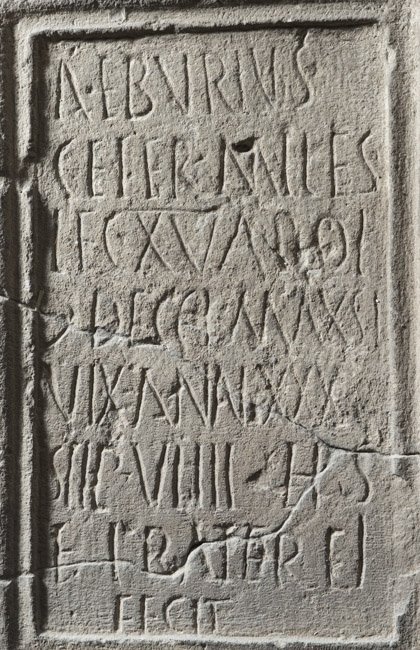 A·EBVRIVS
CELER·ANIES
LEG XV APOL
MAXSI
VIX ANN XXX
STIP·VIIII·H·S
E·FRATER EI
FECIT